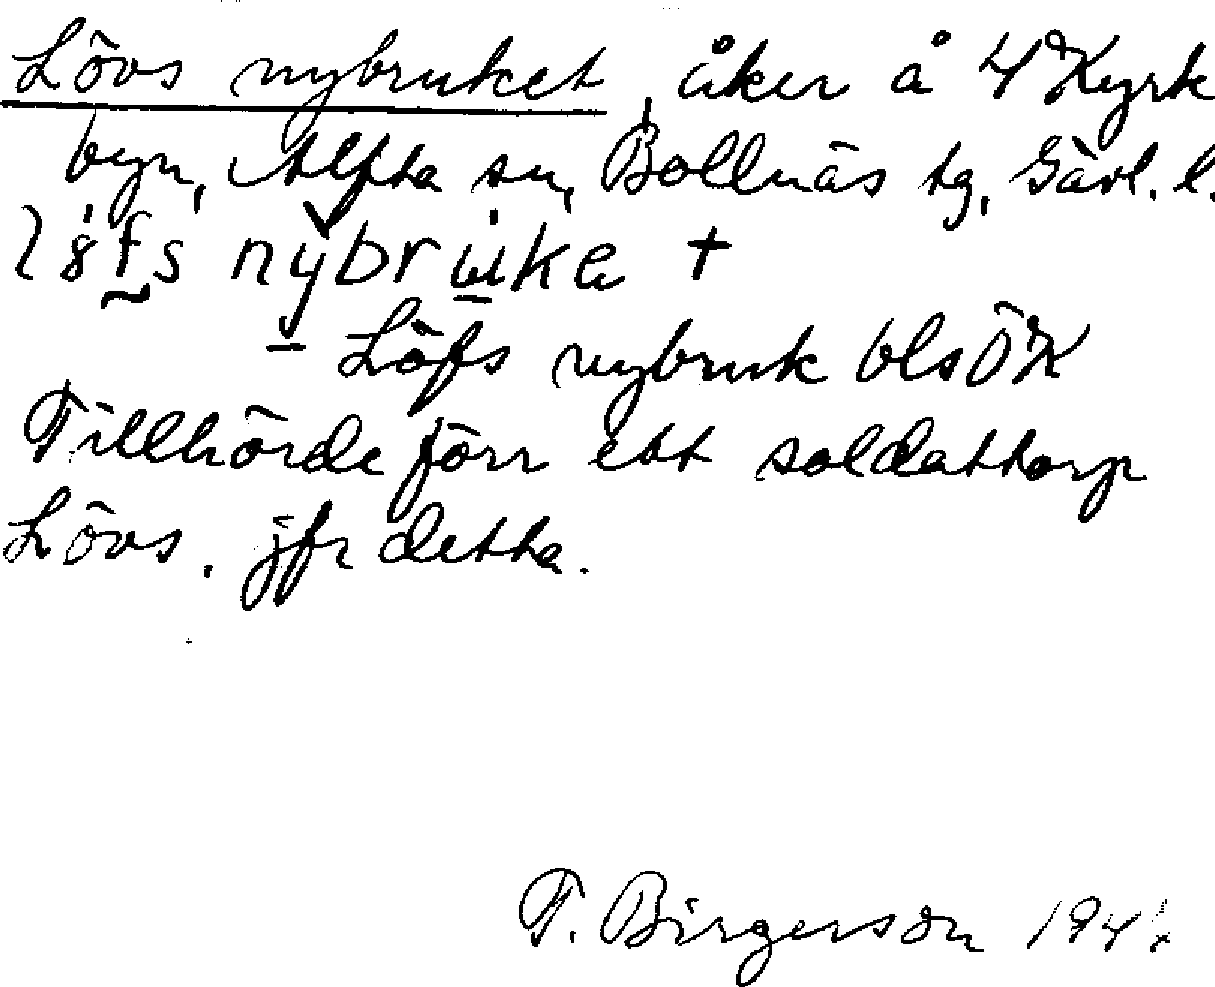 Lövs nybruket, åker å 4 Kyrk
byn, Alfta sn, Bollnäs tg, Gävl. l.
Löfs nybruk bls ÖK
Tillhörde förr ett soldattorp
Lövs, jfr detta.
T. Birgerson